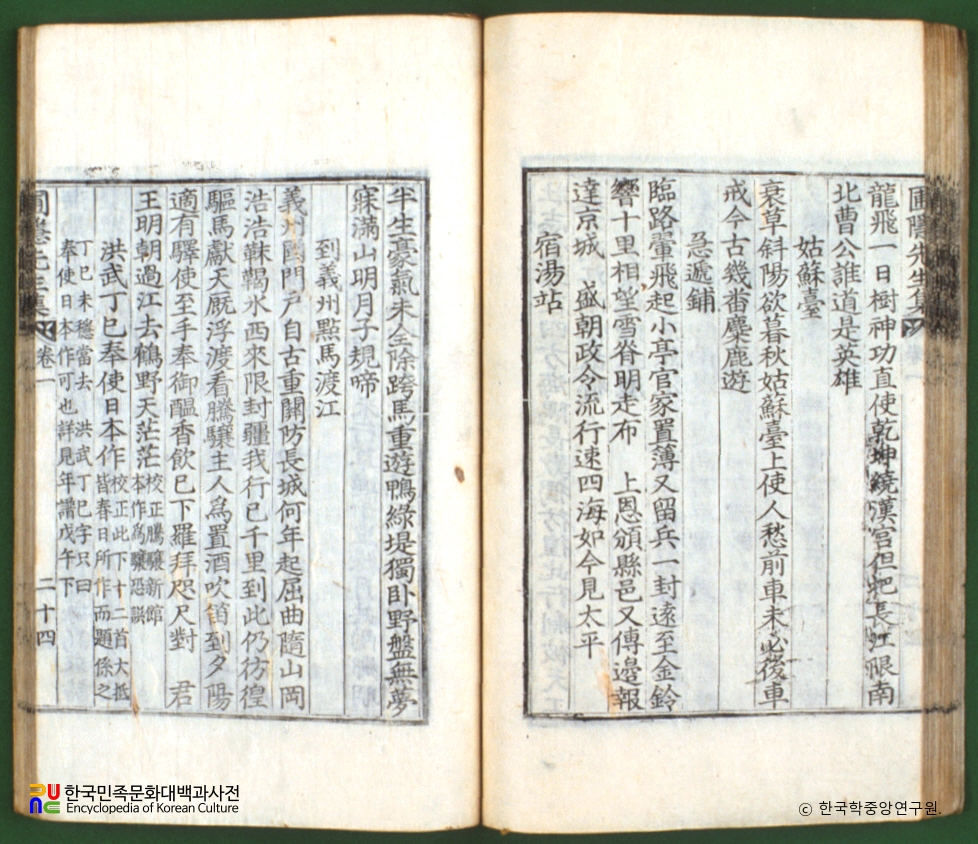 圃隱先生集 卷一
龍飛一日樹神功直使乾坤繞漢宮但把長江限南
北曹公誰道是英雄
姑蘇臺
衰草斜陽欲暮秋姑蘇臺上使人愁前車未必後車
戒今古幾番麋鹿遊
急遞鋪
臨路翬飛起小亭官家置簿又留兵一封遠至金鈴
響十里相望雪脊明走布 上恩頒縣邑又傳邊報
達京城 盛朝政令流行速四海如今見太平
宿湯站
半生豪氣未全除跨馬重遊鴨綠堤獨卧野盤無夢
寐滿山明月子規啼
到義州點馬渡江
義州國門戶自古重關防長城何年起屈曲隨山岡
浩浩靺鞨水西來限封疆我行已千里到此仍彷徨
驅馬獻天厩浮渡看騰驤主人爲置酒吹笛到夕陽
適有驛使至手奉御醞香飮已下羅拜咫尺對 君
王明朝過江去鶴野天茫茫校正騰驤新舘
本作爲驤恐誤
洪武丁巳奉使日本作校正此下十二首大抵
皆春日所作而題係之
丁巳未穩當去洪武丁巳字只曰
奉使日本作可也詳見年譜戊午下
圃隱先生集 卷一 二十四
한국민족문화대백과사전
Encyclopedia of Korean Culture
ⓒ 한국학중앙연구원.